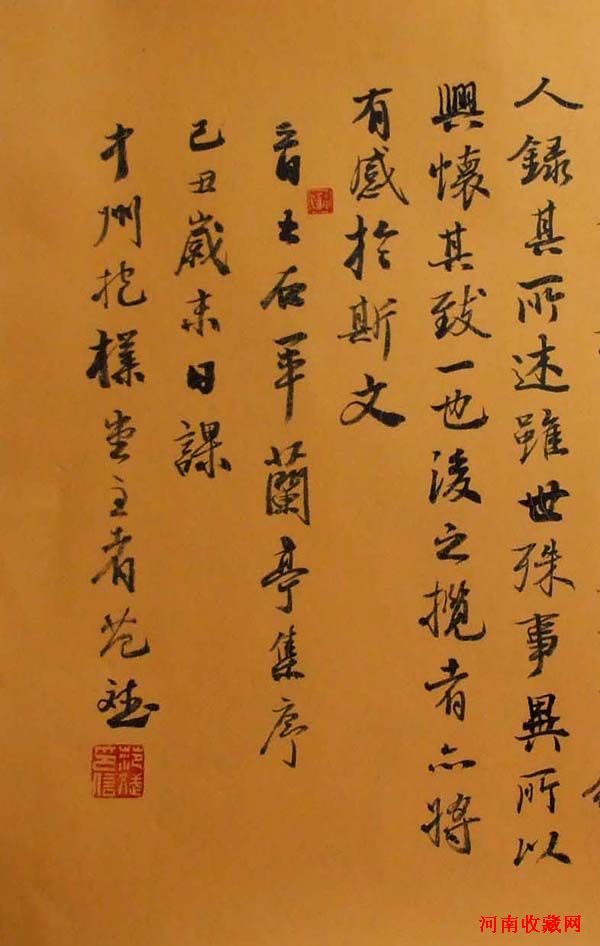 人録其所述雖世殊事異所以
興懷其致一也後之攬者亦將
有感於斯文
晋王右軍蘭亭集序
己丑歲末日課
中州抱樸堂主者范斌
河南收藏网